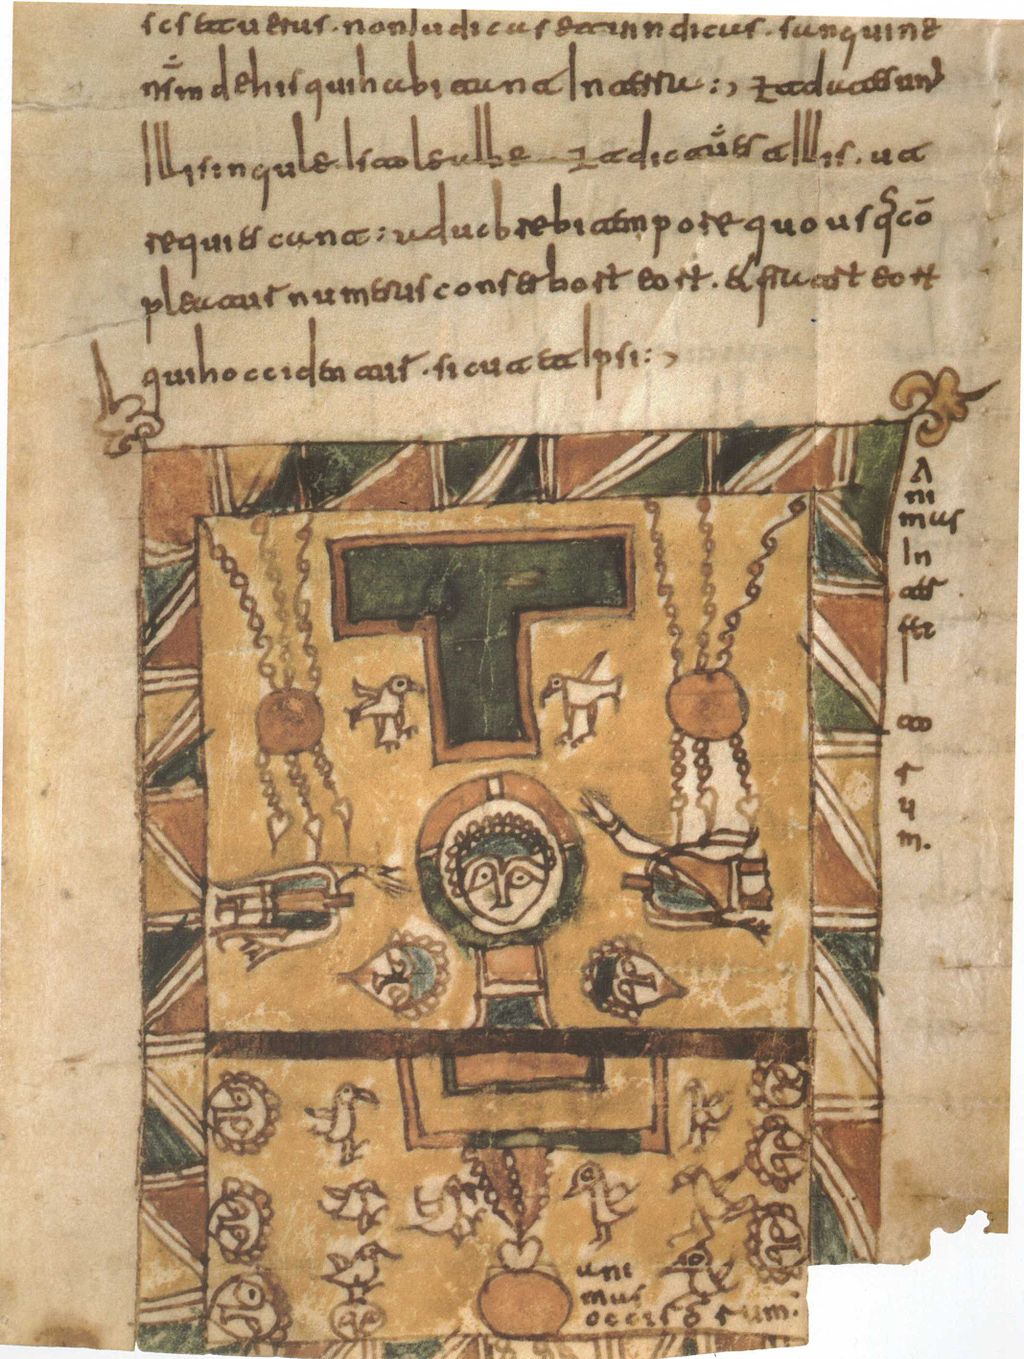 scs et uerus. non Iudicas et uindicas. sanguine
nrm de his qui habitant In terra:, et date sunt
Illis singule stole albe et dictum est Illis. ut
requiescant: aduc brebi tempore quousq cō
pleatur numerus conserborum eorum. et fratrum eorum
qui hoccidentur. sicut et Ipsi:,
A
ni
mas
In
terum.
ani
mas
occisorum: